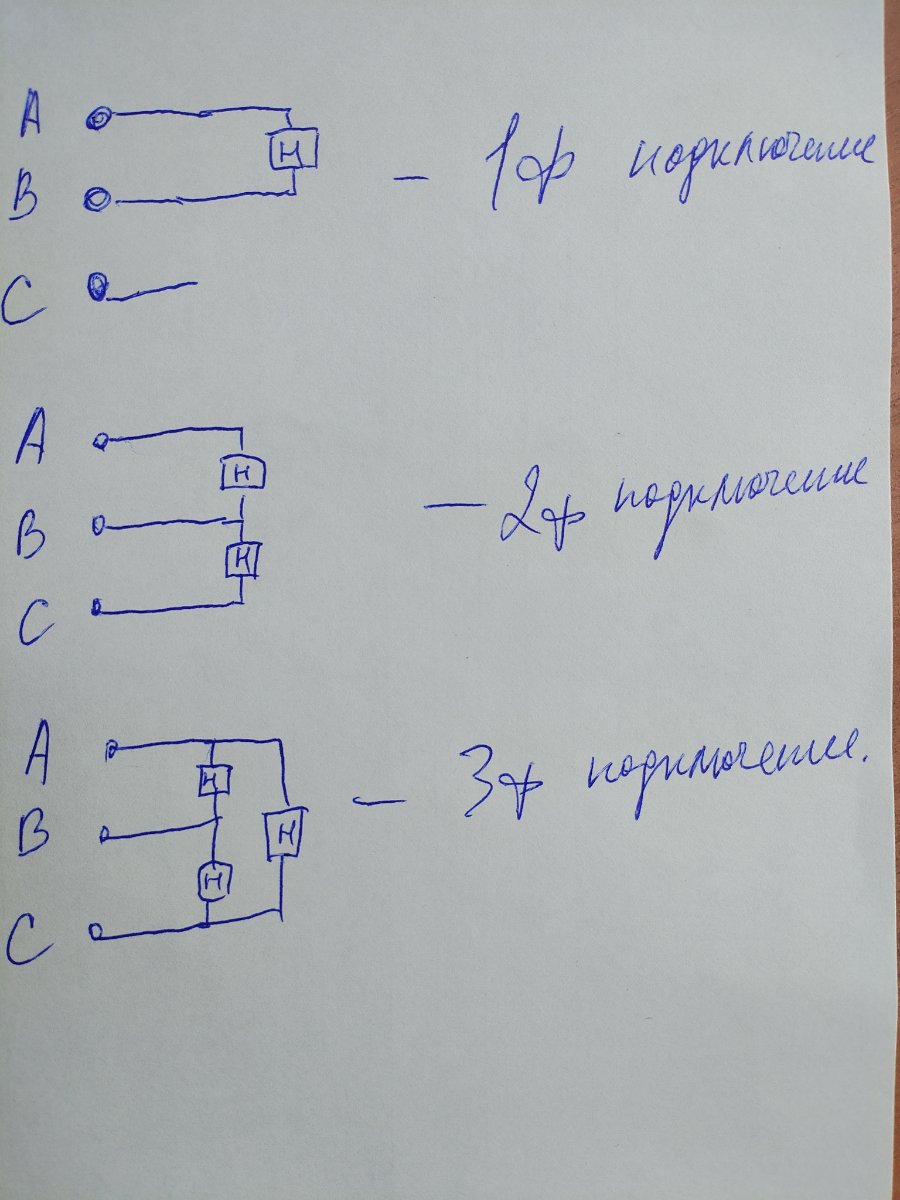 A
H
- 1ф подключение
B
C
A
H
- 2ф подключение
B
H
C
A
H
- 3ф подключение.
B
H
H
C